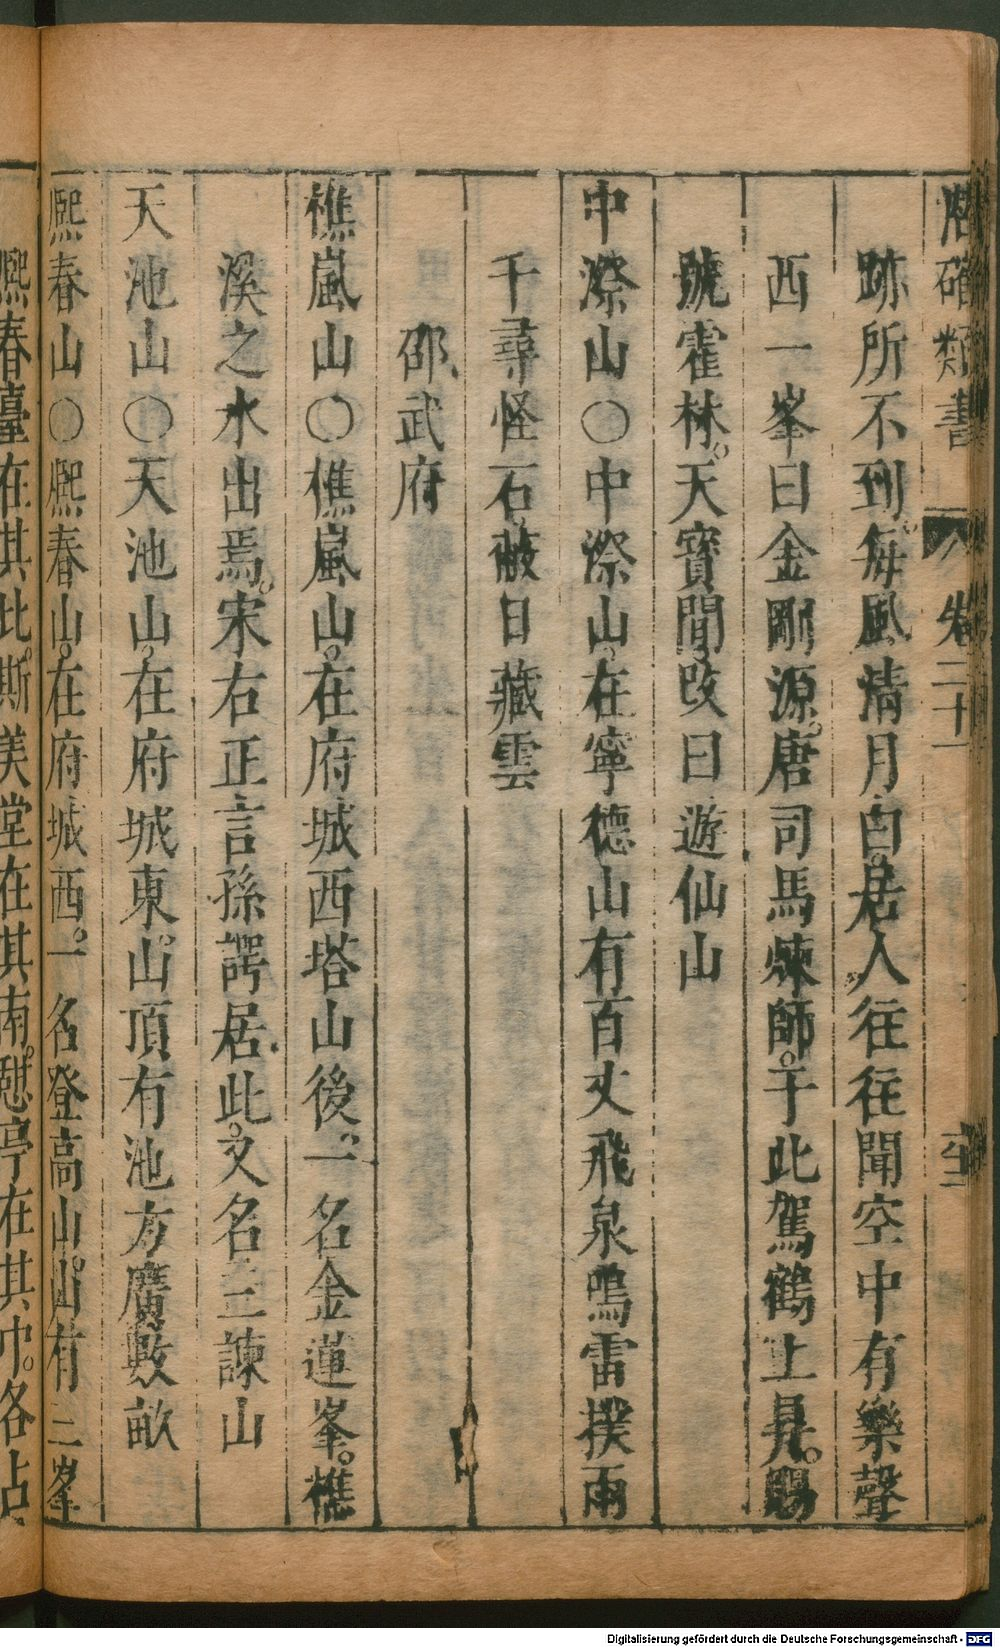 潛確類書 卷二十一
跡所不到。每風清月白。居人往往聞空中有樂聲
西一峯曰金剛源。唐司馬煉師。于此駕鶴上昇。賜
號霍林。天寶間。改曰遊仙山
中漈山○中漈山。在寧德山有百丈飛泉鳴雷撲雨
千尋怪石。蔽日藏雲
邵武府
樵嵐山○樵嵐山。在府城西塔山後。一名金蓮峯。樵
溪之水出焉。宋右正言孫諤居此。又名三諫山
天池山○天池山。在府城東。山頂有池方廣數畝
熈春山○熈春山。在府城西。一名登高山。山有三峯
熈春臺在其北。斯美堂在其南。憇亭在其巾。各占
Digitalisierung gefördert durch die Deutsche Forschungsgemeinschaft - DFG